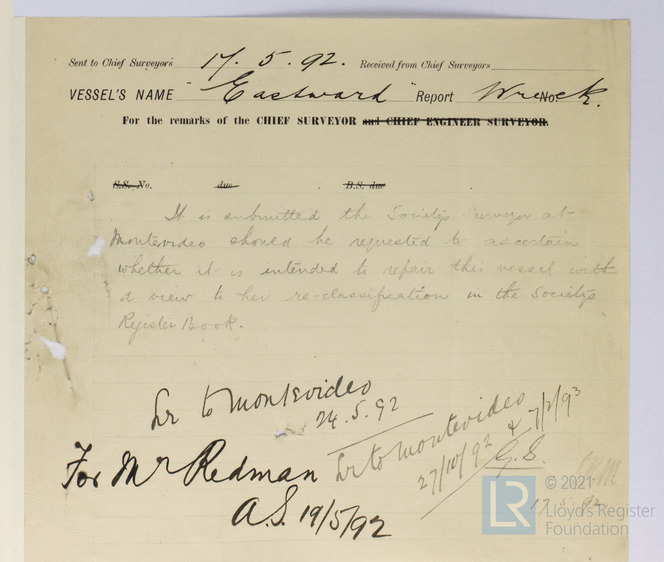 Sent to Chief Surveyors 17.5.92. Received from Chief Surveyors
VESSEL'S NAME "Eastward" Report No. Wreck.
For the remarks of the CHIEF SURVEYOR and CHIEF ENGINEER SURVEYOR.
S.S. No. due B.S. due
It is submitted the Society's Surveyor at
Montevideo should be requested to ascertain
whether it is intended to repair this vessel with
a view to her re-classification in the Society's
Register Book.
Lr to Montevideo
24.5.92
Lr to Montevideo
27/10/92 & 7/2/93
G.S.
For Mr Redman
A.S. 19/5/92
17.5.92
© 2021
LR
Lloyd's Register
Foundation